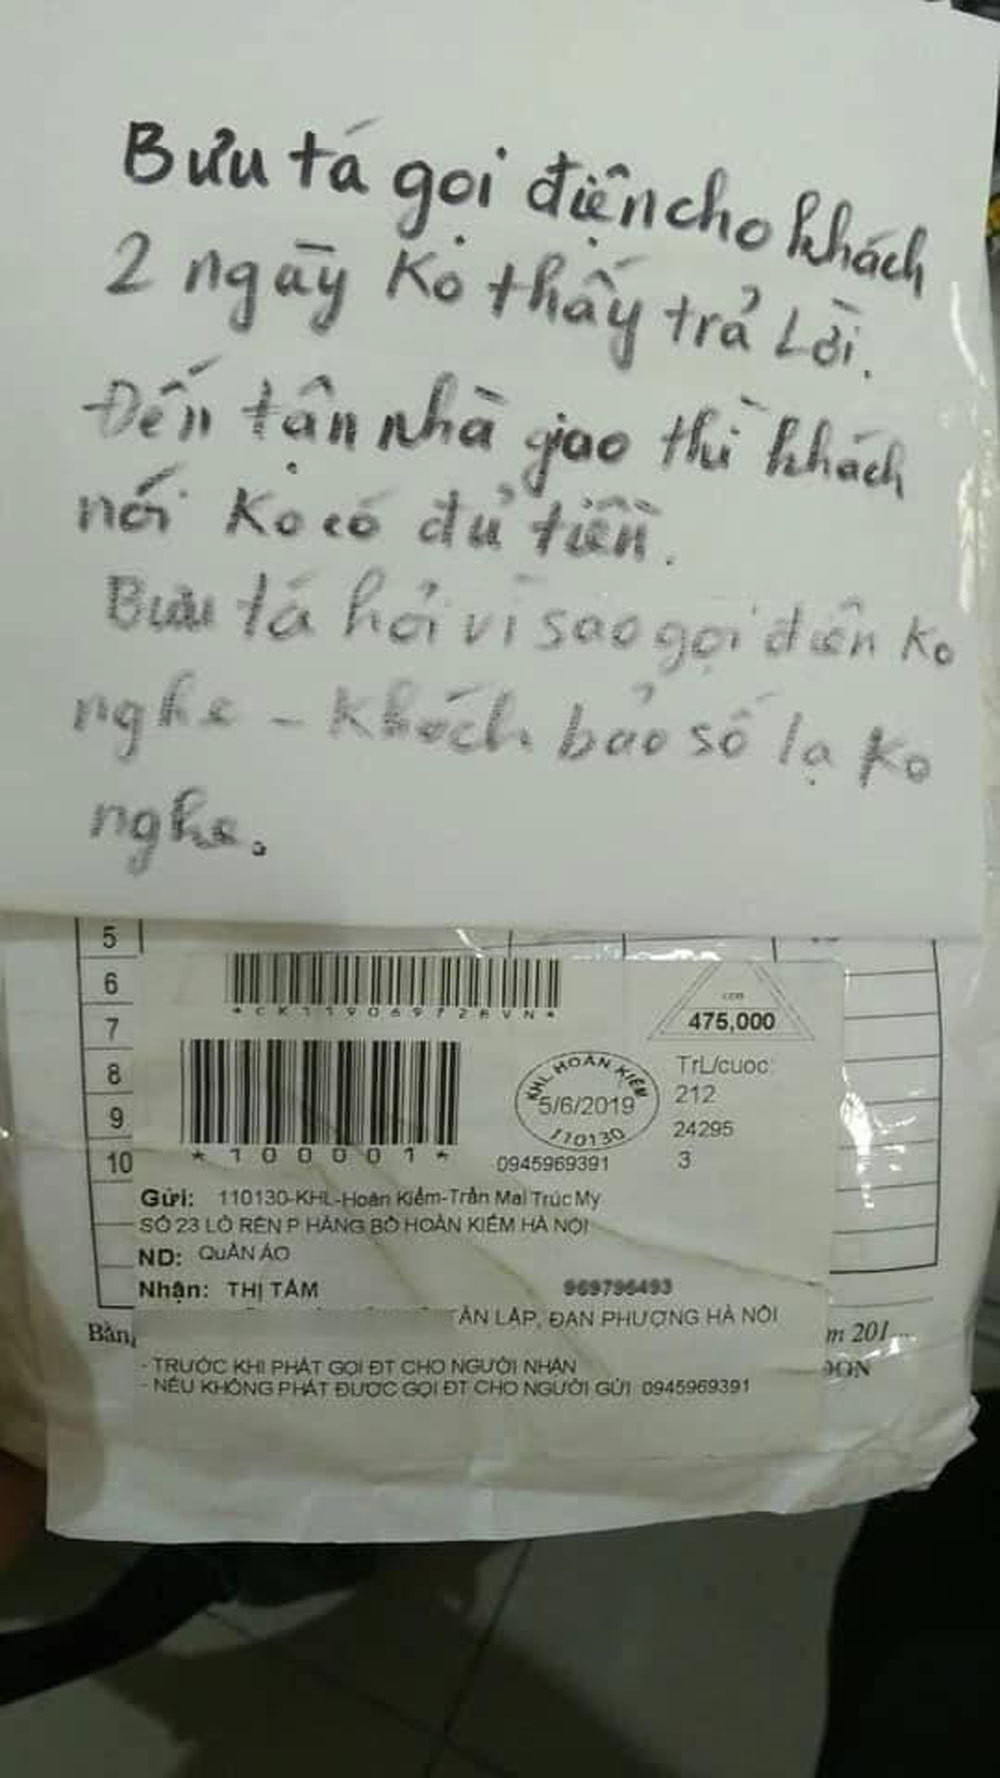 Bưu tá gọi điện cho khách
2 ngày Ko thấy trả Lời.
Đến tận nhà giao thì khách
nói Ko có đủ tiền.
Bưu tá hỏi vì sao gọi điện Ko
nghe - Khách bảo số lạ Ko
nghe.
5
6
7
8
9
10
*CK119069728VN*
COD
475,000
*100001*
KHL HOÀN KIẾM
5/6/2019
110130
0945969391
TrL/cuoc:
212
24295
3
Gửi: 110130-KHL-Hoàn Kiếm-Trần Mai Trúc My
SỐ 23 LÒ RÈN P HÀNG BỒ HOÀN KIẾM HÀ NỘI
ND: QuẦN ÁO
Nhận: THỊ TÂM 969796493
ÂN LẬP, ĐAN PHƯỢNG HÀ NỘI
- TRƯỚC KHI PHÁT GỌI ĐT CHO NGƯỜI NHẬN
- NẾU KHÔNG PHÁT ĐƯỢC GỌI ĐT CHO NGƯỜI GỬI 0945969391
Bằn
m 201...